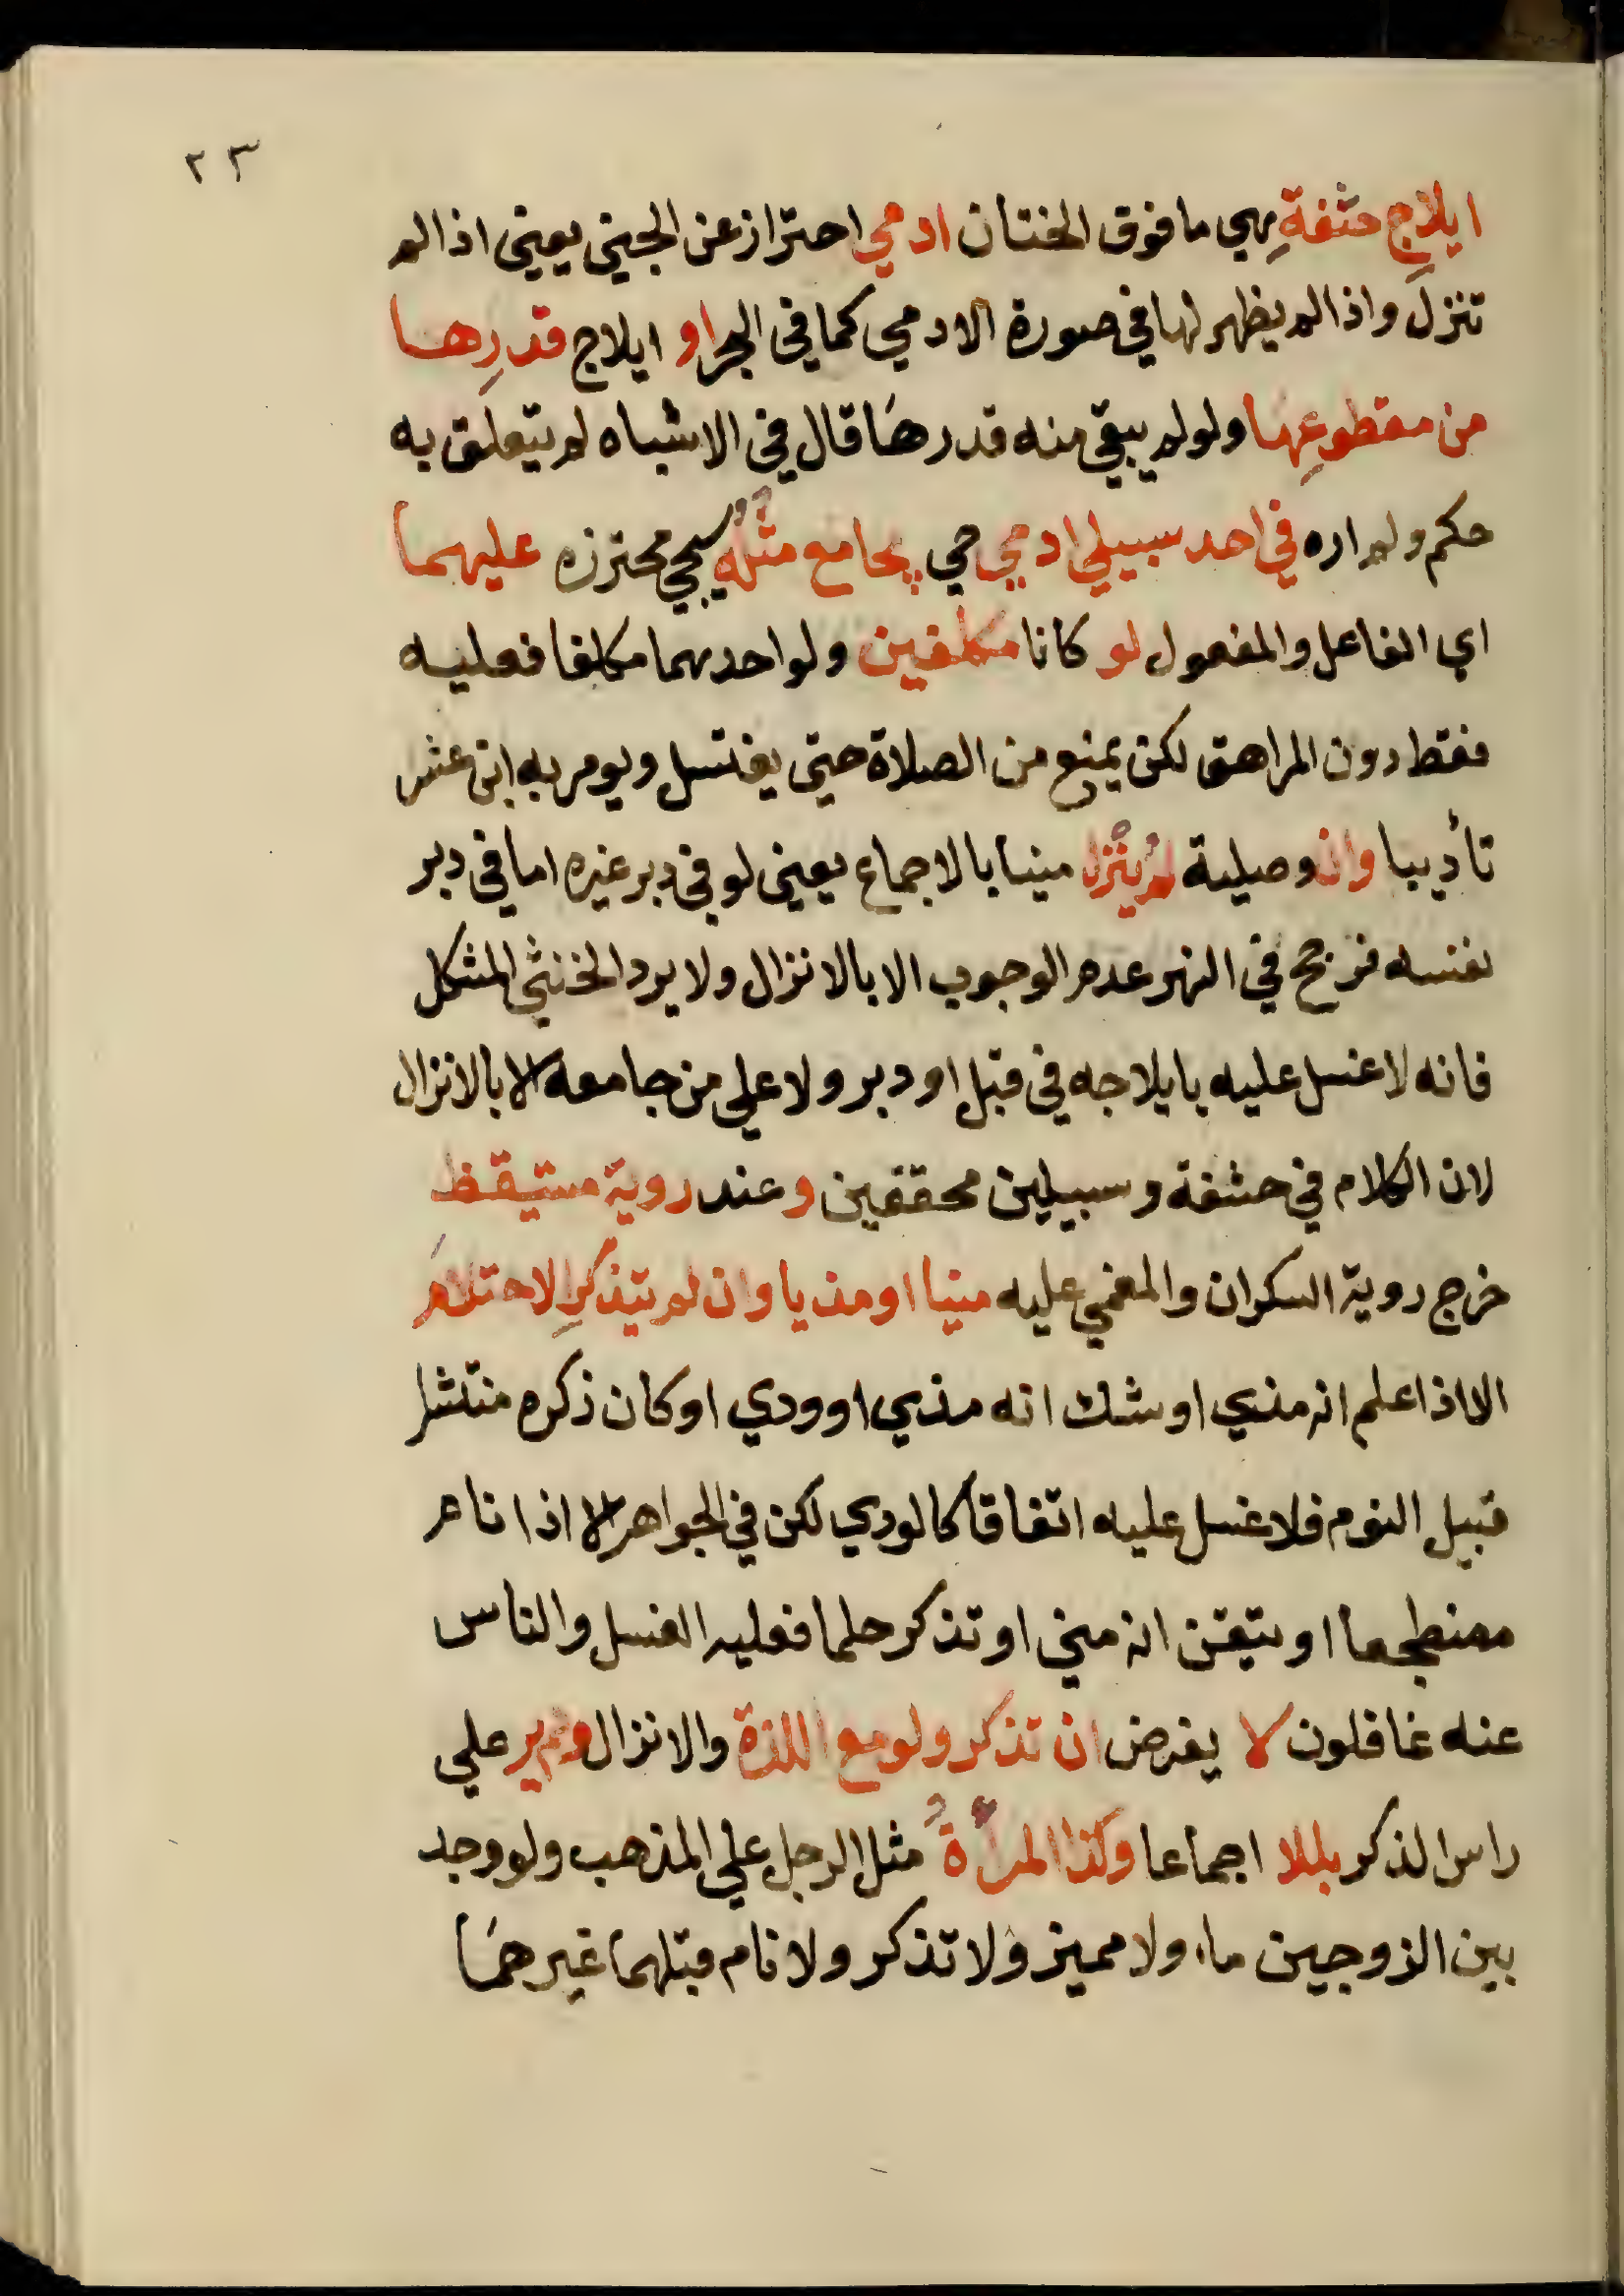 ٢٣
ايلاج حشفة هي ما فوق الختان ادمي احتراز عن الجني يعني اذا لم
تنزل واذا لم يظهر لها في صورة الادمي كما في البحر او ايلاج قدرها
من مقطوعها ولو لم يبقي منه قدرها قال في الاشباه لم يتعلق به
حكم ولم اره في احد سبيلي ادمي حي يجامع مثله سيجي محترزه عليهما
اي الفاعل والمفعول لو كانا مكلفين ولو احدهما مكلفا فعليه
فقط دون المراهق لكن يمنع من الصلاة حتي يغتسل ويومر به ابن عشر
تأديبا وان وصلية لم ينزل منيا بالاجماع يعني لو في دبر غيره اما في دبر
نفسه فرجح في النهر عدم الوجوب الا بالانزال ولا يرد الخنثي المشكل
فانه لا غسل عليه بايلاجه في قبل او دبر ولا علي من جامعه الا بالانزال
لان الكلام في حشفة وسبيلين محققين وعند روية مستيقظ
خرج روية السكران والمغمي عليه منيا او مذيا وان لم يتذكر الاحتلام
الا اذا علم انه مذي او شك انه مذي او ودي او كان ذكره منتشرا
قبيل النوم فلا غسل عليه اتفاقا كالودي لكن في الجواهر الا اذا نام
مضطجعا او تيقن انه مني او تذكر حلما فعليه الغسل والناس
عنه غافلون لا يفرض ان تذكر ولو مع اللذة والانزال ولم ير علي
راس الذكر بللا اجماعا وكذا المرأة مثل الرجل علي المذهب ولو وجد
بين الزوجين ماء ولا مميز ولا تذكر ولا نام قبلهما غيرهما